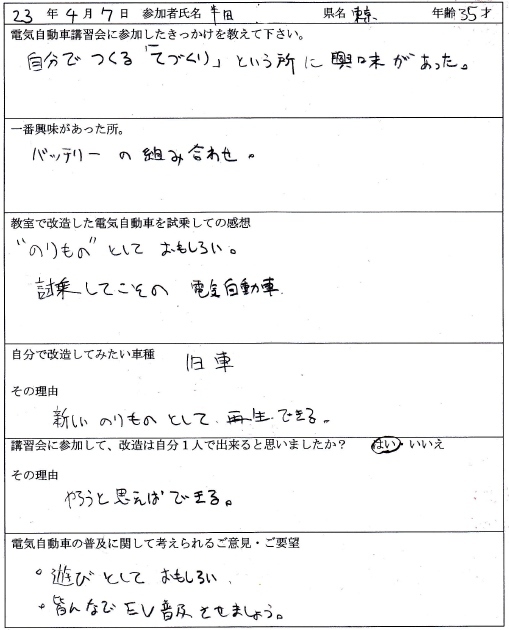 23 年 4 月 7 日 参加者氏名 県名 東京 年齢 35 才
電気自動車講習会に参加したきっかけを教えて下さい。
自分で つくる 「てづくり」 という所 に 興味 が あった。
一番興味があった所。
バッテリー の 組み合わせ。
教室で改造した電気自動車を試乗しての感想
"のりもの" として おもしろい。
試乗してこその 電気自動車
自分で改造してみたい車種 旧車
その理由
新しい のりもの として 再生 できる。
講習会に参加して、改造は自分1人で出来ると思いましたか? はい・いいえ
その理由
やろうと思えば できる。
電気自動車の普及に関して考えられるご意見・ご要望
。遊び として おもしろい
・皆んなで EV 普及 させましょう。